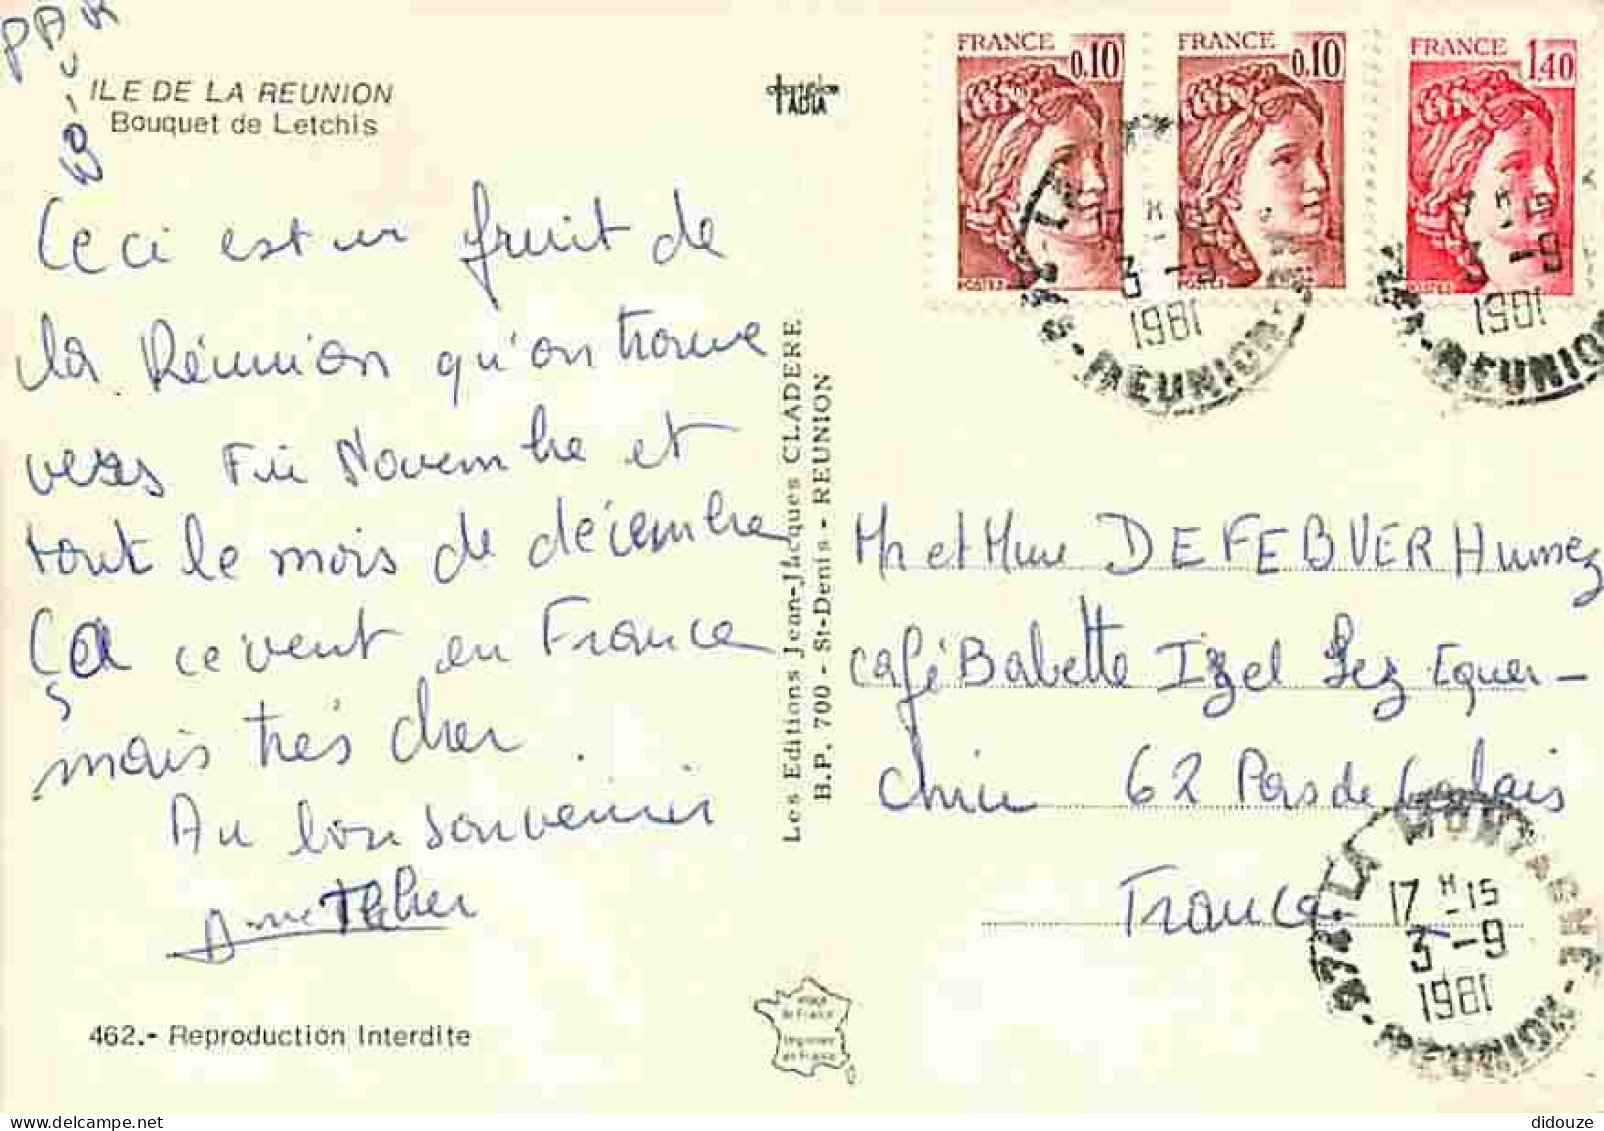 PAR
AVION
ILE DE LA REUNION
Bouquet de Letchis
Ceci est un fruit de
la Réunion qu'on trouve
vers Fin Novembre et
tout le mois de décembre
Ça ce vent en France
mais très cher
Au bon souvenir
462.- Reproduction Interdite
Les Editions Jean-Jacques CLADERE
B.P. 700 - St-Denis - REUNION
FRANCE 0,10
POSTES
FRANCE 0,10
POSTES
FRANCE 1,40
POSTES
3 -9
1981
REUNION
3 -9
1981
REUNION
Mr et Mme DEFEBVER
café Babette Izel Lez Equer-
chin 62 Pas de Calais
France
974 - LA MONTAGNE - REUNION
17 H 15
3 -9
1981
Image
de France
Imprimée
en France
didouze